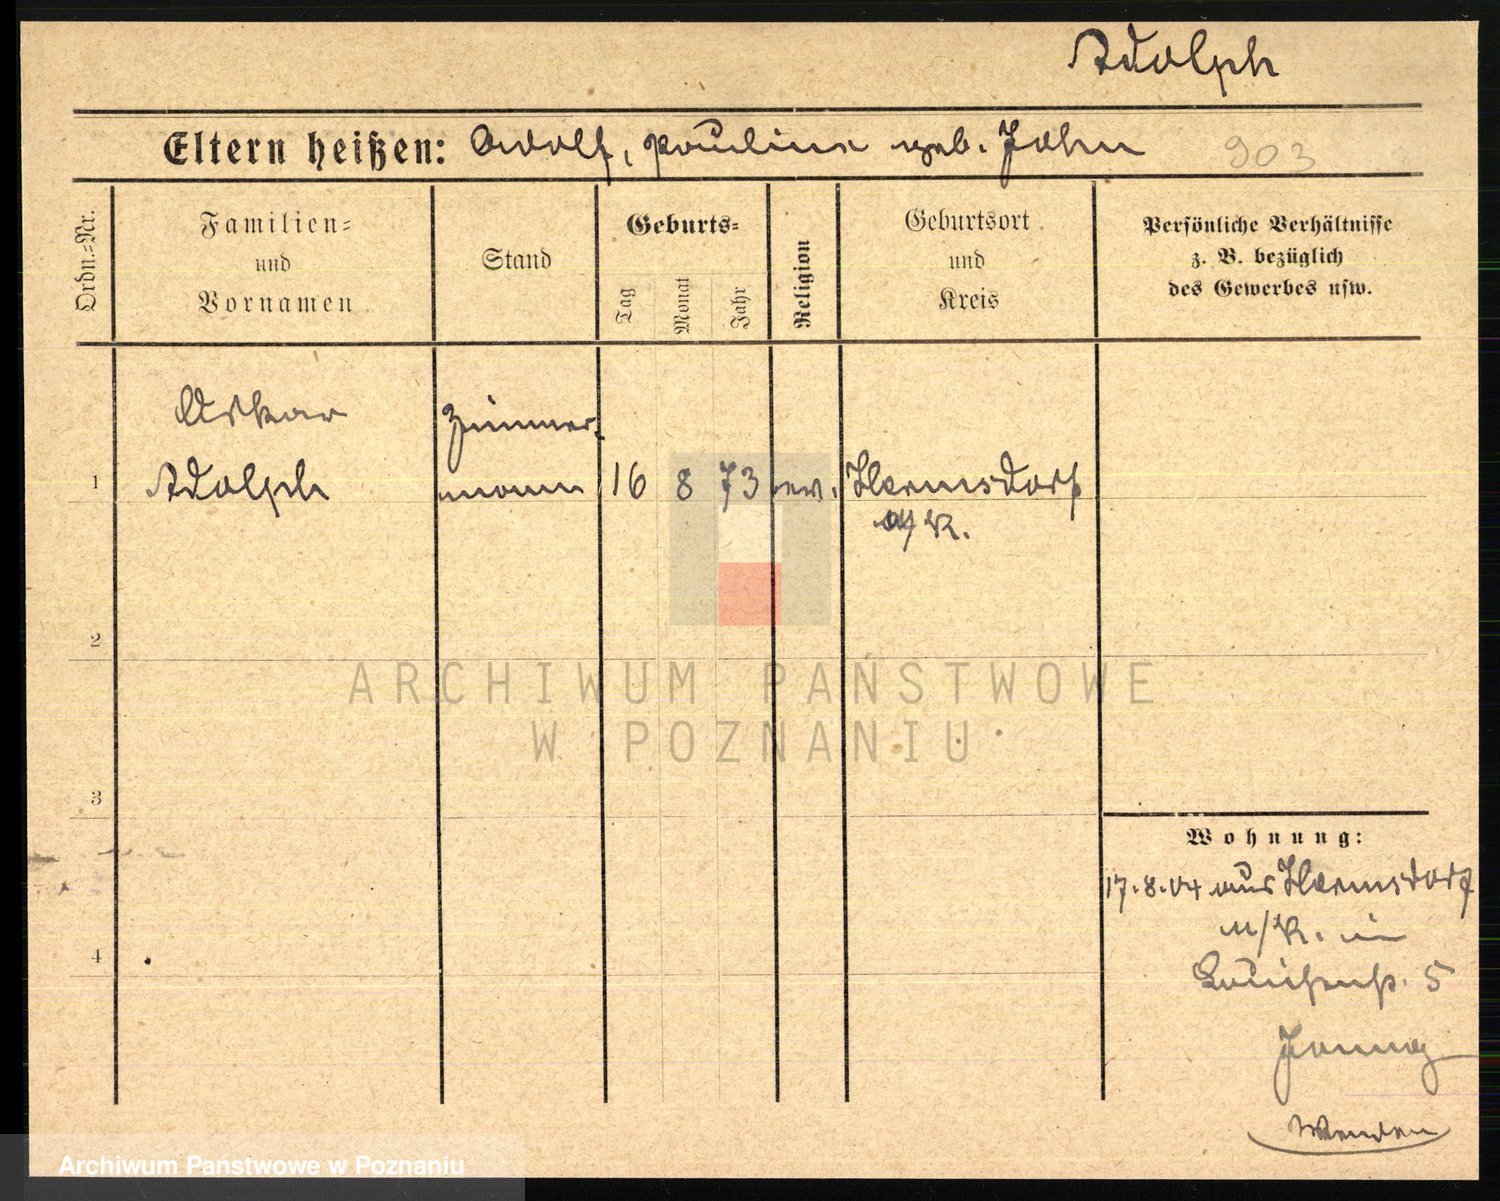 Adolph
Eltern heißen: Adolf, Pauline geb. Jahn 903
Ordn.-Nr.
Familien-
und
Vornamen
Stand
Geburts-
Tag
Monat
Jahr
Religion
Geburtsort
und
Kreis
Persönliche Verhältnisse
z. B. bezüglich
des Gewerbes usw.
Oskar Zimmer-
1 Adolph mann 16 8 73 ev. Hermsdorf
a/K.
2
ARCHIWUM PAŃSTWOWE
W POZNANIU
3
Wohnung:
17.8.04 aus Hermsdorf
a/K. in
4
5
Wenden
Archiwum Państwowe w Poznaniu